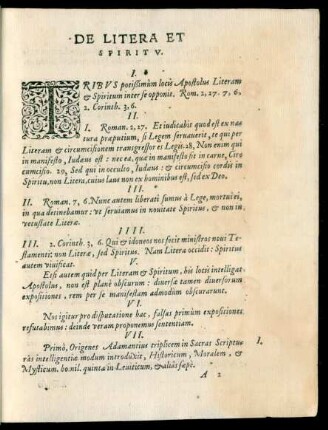 DE LITERA ET
SPIRITV.
I.
TRIBVS potissimùm locis Apostolus Literam
& Spiritum inter se opponit. Rom. 2, 27. 7, 6,
2. Corinth. 3. 6.
II.
I. Roman. 2, 27. Et iudicabit quod est ex na
tura praputium, si Legem seruauerit, te qui per
Literam & circumcisionem transgressor es Legis. 28, Non enim qui
in manifesto, Iudaus est: nec ea, qua in manifesto fit in carne, Circ
cumcisio. 29, Sed qui in occulto, Iudaus: & circumcisio cordis in
Spiritu, non Litera, cuius laus non ex hominibus est, sed ex Deo.
III.
II. Roman. 7, 6. Nunc autem liberati sumus à Lege, mortui ei,
in qua detinebamur: vt seruiamus in nouitate Spiritus, & non in
vetustate Litera.
IIII.
III. 2. Corinth. 3, 6. Qui & idoneos nos fecit ministros noui Te-
stamenti: non Litera, sed Spiritus. Nam Litera occidit: Spiritus
autem viuificat.
V.
Etsi autem quid per Literam & Spiritum, his locis intelligat
Apostolus, non est planè obscurum: diuersa tamen diuersorum
expositiones, rem per se manifestam admodùm obscurarunt.
VI.
Nos igitur pro disputatione hac, falsas primùm expositiones
refutabimus: deinde veram proponemus sententiam.
VII.
Primò, Origenes Adamantius triplicem in Sacras Scriptu I.
ras intelligentiæ modum introduxit, Historicum, Moralem, &
Mysticum. homil. quinta in Leuiticum, & aliàs sæpè.
A 2